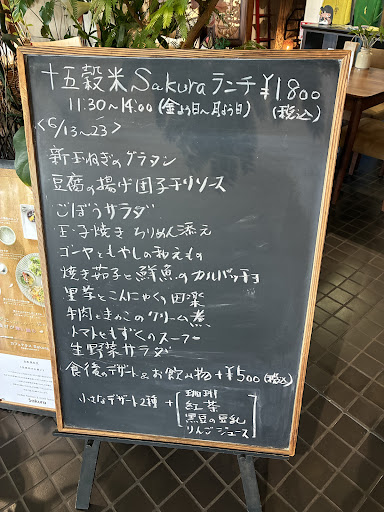 十五穀米Sakuraランチ ¥1800
11:30～14:00 (金よう日～月よう日) (税込)
<6/13～23>
新玉ねぎのグラタン
豆腐の揚げ団子チリソース
ごぼうサラダ
玉子焼き ちりめん添え
ゴーヤともやしの和えもの
焼き茄子と鮮魚のカルパッチョ
里芋とこんにゃくの田楽
牛肉ときのこのクリーム煮
トマトともずくのスープ
生野菜サラダ
食後のデザート&お飲み物+¥500(税込)
小さなデザート2種 +
珈琲
紅茶
黒豆の豆乳
りんごジュース
Sakura